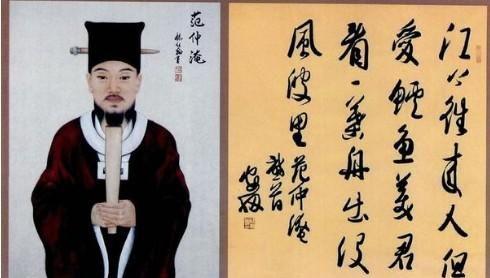 范仲淹
江上往来人但
愛鲈魚美君
看一葉舟出没
風波里 范仲淹